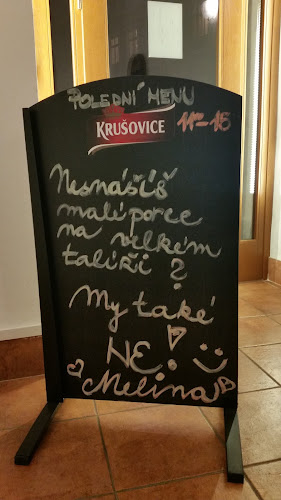 POLEDNÍ MENU
KRUŠOVICE 11-15
Nesnášíš
malé porce
na velkém
talíři ?
My také
NE !
Melina